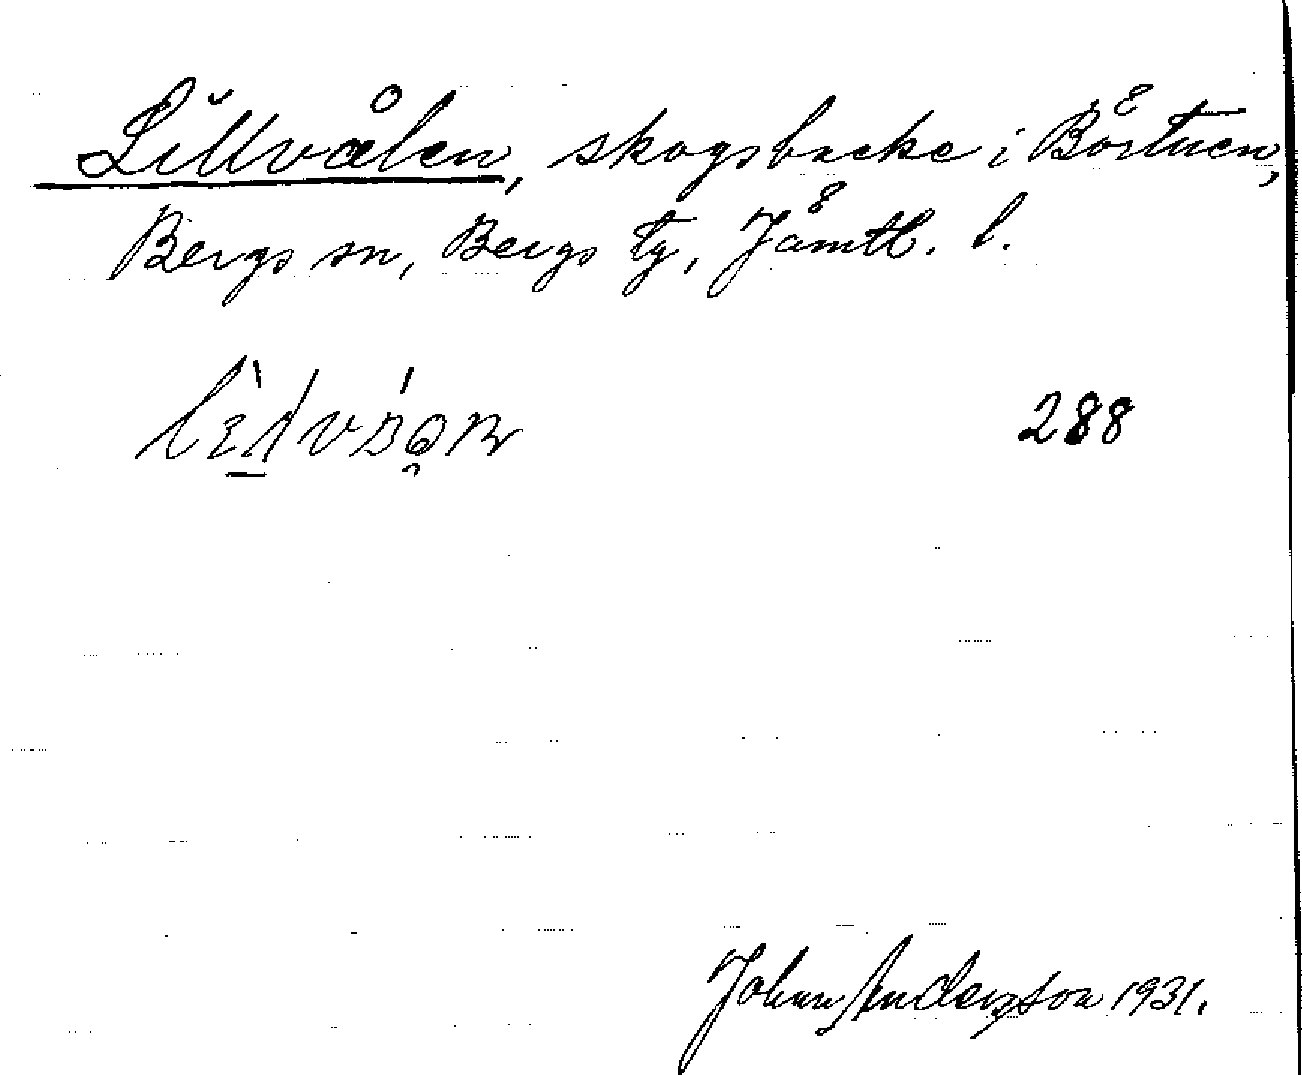 Lillvålen, skogsbacke i Börtnen,
Bergs sn, Bergs tg, Jämtl. l.
288
Johan Andersson 1931.